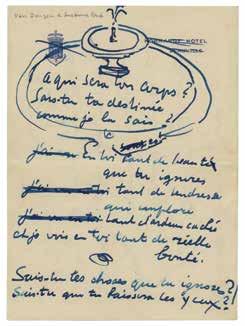 Van Dongen à
NORMANDY HOTEL
A qui sera ton corps?
Sais-tu ta destinée
comme je la sais?
J'ai vu En toi tant de beauté
que tu ignores
J'ai vu tant de tendresse
qui implore
J'ai vu tant d'ardeur cachée
et je vois en toi tant de réelle
bonté.
Sais-tu tes choses que tu ignores?
Sais-tu que tu baisseras les yeux?